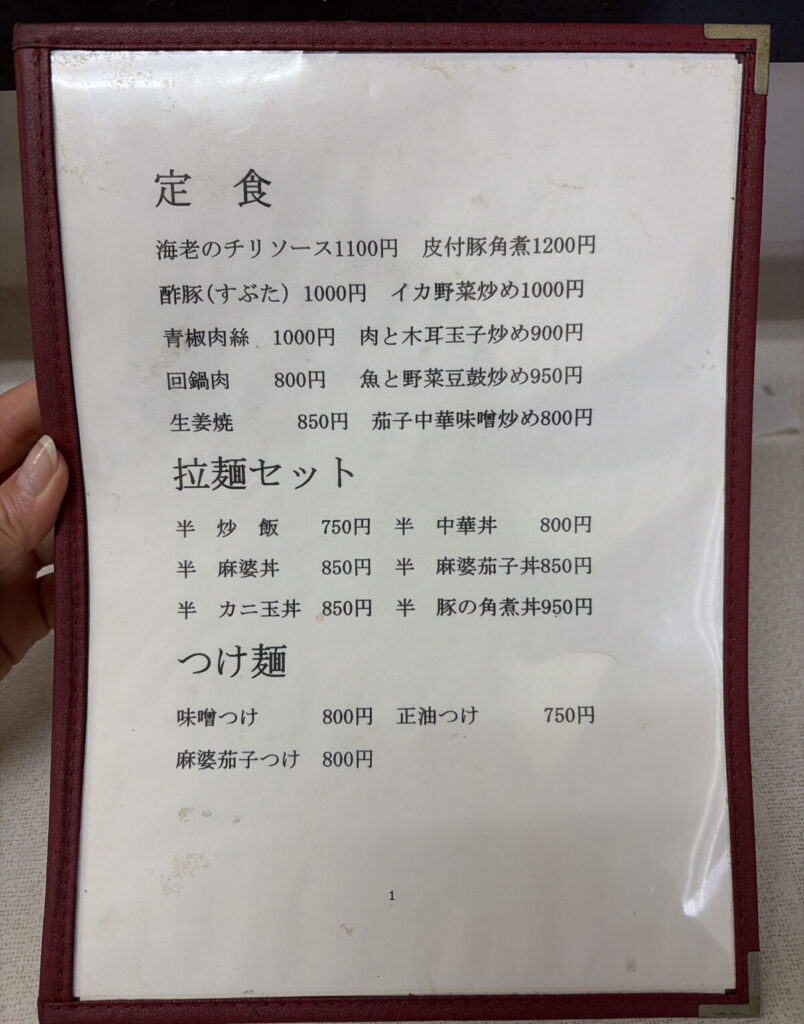 定 食
海老のチリソース1100円 皮付豚角煮1200円
酢豚(すぶた) 1000円 イカ野菜炒め1000円
青椒肉絲 1000円 肉と木耳玉子炒め900円
回鍋肉 800円 魚と野菜豆鼓炒め950円
生姜焼 850円 茄子中華味噌炒め800円
拉麺セット
半 炒 飯 750円 半 中華丼 800円
半 麻婆丼 850円 半 麻婆茄子丼850円
半 カニ玉丼 850円 半 豚の角煮丼950円
つけ麺
味噌つけ 800円 正油つけ 750円
麻婆茄子つけ 800円
1